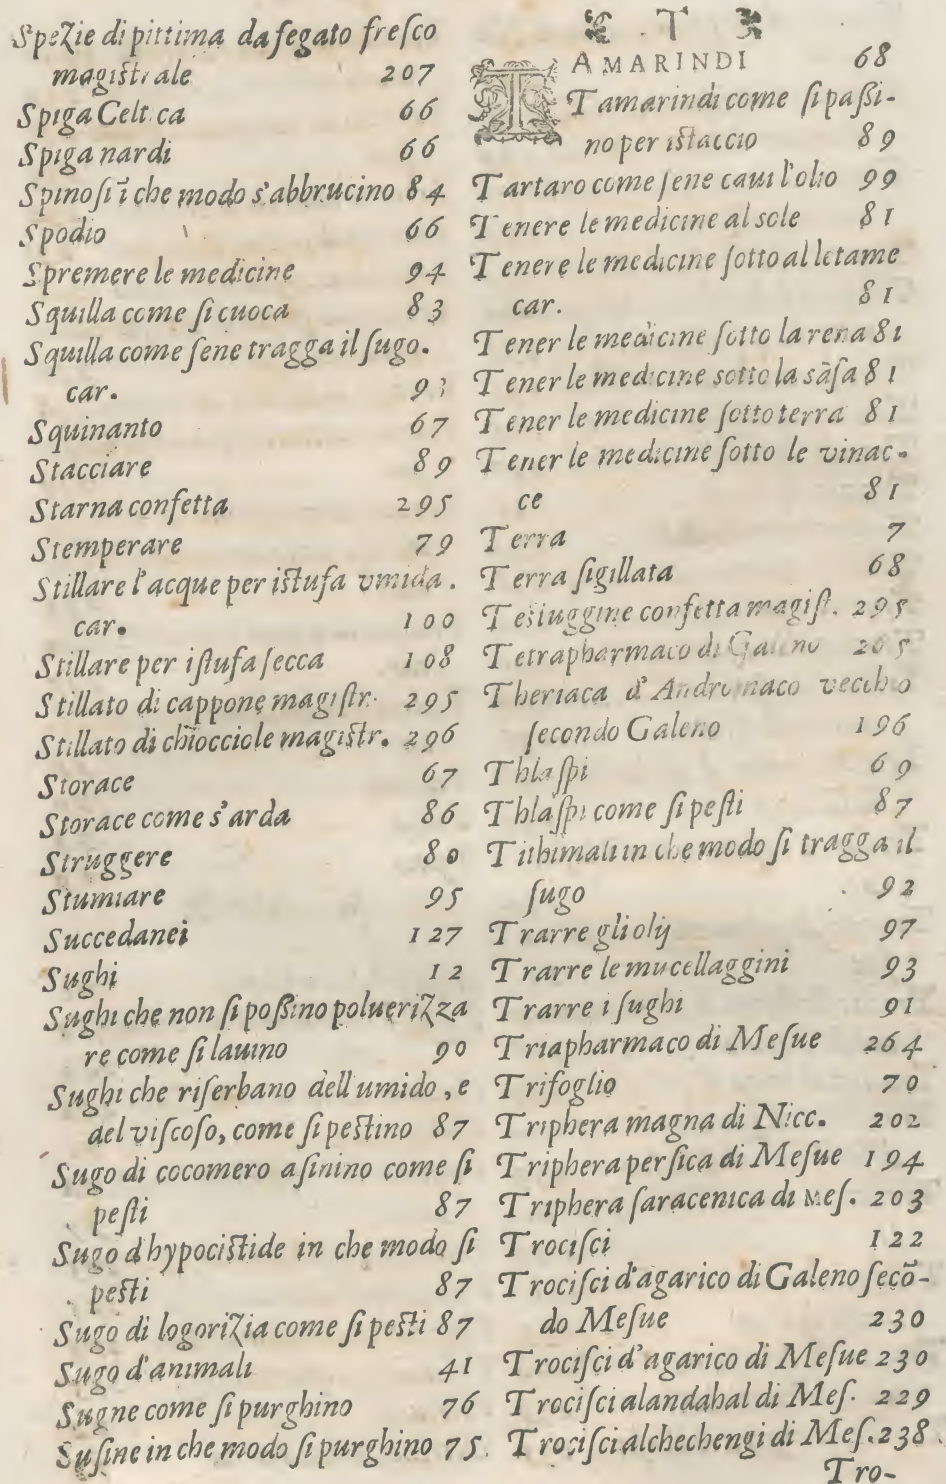 Speζie di pittima da fegato freſco
magiſtrale 207
Spiga Celtica 66
Spiga nardi 66
Spinoſi ī che modo s'abbrucino 84
Spodio 66
Spremere le medicine 94
Squilla come ſi cuoca 83
Squilla come ſene tragga il ſugo.
car. 93
Squinanto 67
Stacciare 89
Starna confetta 295
Stemperare 79
Stillare l'acque per iſtufa vmida.
car. 100
Stillare per iſtufa ſecca 108
Stillato di cappone magiſtr. 295
Stillato di chiocciole magiſtr. 296
Storace 67
Storace come s'arda 86
Struggere 80
Stumiare 95
Succedanei 127
Sughi 12
Sughi che non ſi poſſino polueriζza
re come ſi lauino 90
Sughi che riſerbano dell umido, e
del viſcoſo, come ſi peſtino 87
Sugo di cocomero aſinino come ſi
peſti 87
Sugo d hypociſtide in che modo ſi
peſti 87
Sugo di logoriζia come ſi peſti 87
Sugo d'animali 41
Sugne come ſi purghino 76
Suſine in che modo ſi purghino 75.
T
TAMARINDI 68
Tamarindi come ſi paſſi-
no per iſtaccio 89
Tartaro come ſene caui l'olio 99
Tenere le medicine al sole 81
Tenere le medicine ſotto al letame
car. 81
Tener le medicine ſotto la rena 81
Tener le medicine sotto la sāſa 81
Tener le medicine ſotto terra 81
Tener le medicine ſotto le vinac-
ce 81
Terra 7
Terra ſigillata 68
Teſtuggine confetta magiſt. 295
Tetrapharmaco di Galeno 205
Theriaca d'Andromaco vecchio
ſecondo Galeno 196
Thlaſpi 69
Thlaſpi come ſi peſti 87
Tithimali in che modo ſi tragga il
ſugo 92
Trarre gli olij 97
Trarre le mucellaggini 93
Trarre i ſughi 91
Triapharmaco di Meſue 264
Trifoglio 70
Triphera magna di Nicc. 202
Triphera perſica di Meſue 194
Triphera ſaracenica di Meſ. 203
Trociſci 122
Trociſci d'agarico di Galeno ſecō-
do Meſue 230
Trociſci d'agarico di Meſue 230
Trociſci alandahal di Meſ. 229
Trociſci alchechengi di Meſ. 238
Tro-